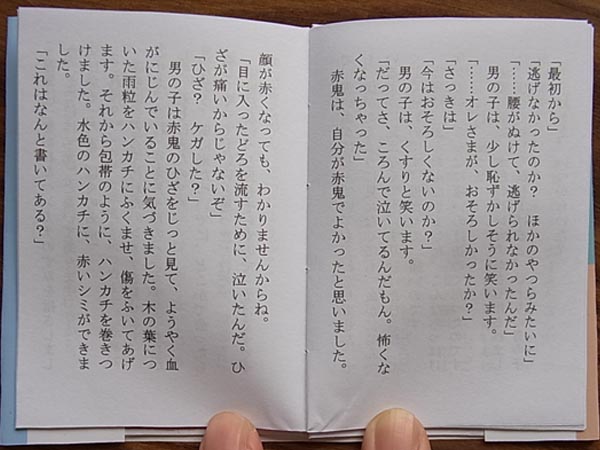 「最初から」
「逃げなかったのか？　ほかのやつらみたいに」
「……腰がぬけて、逃げられなかったんだ」
男の子は、少し恥ずかしそうに笑います。
「……オレさまが、おそろしかったか？」
「さっきは」
「今はおそろしくないのか？」
男の子は、くすりと笑います。
「だってさ、ころんで泣いてるんだもん。怖くな
くなっちゃった」
赤鬼は、自分が赤鬼でよかったと思いました。
顔が赤くなっても、わかりませんからね。
「目に入ったどろを流すために、泣いたんだ。ひ
ざが痛いからじゃないぞ」
「ひざ？　ケガした？」
男の子は赤鬼のひざをじっと見て、ようやく血
がにじんでいることに気づきました。木の葉につ
いた雨粒をハンカチにふくませ、傷をふいてあげ
ます。それから包帯のように、ハンカチを巻きつ
けました。水色のハンカチに、赤いシミができま
した。
「これはなんと書いてある？」